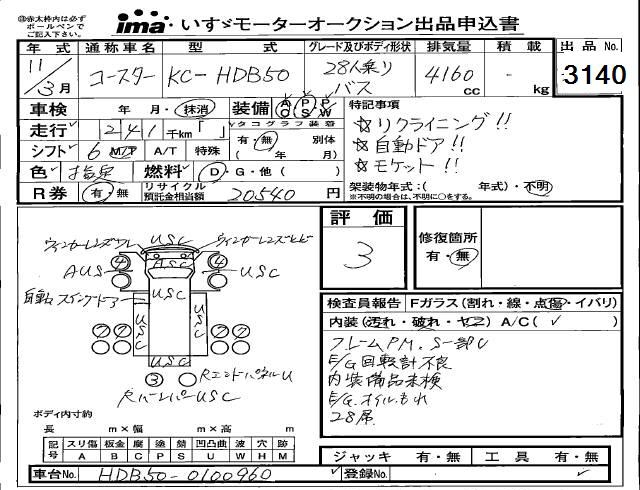 ㊟赤太枠内は必ず
ボールペンで
ご記入下さい。
ima いすゞモーターオークション出品申込書
年式 通称車名 型式 グレード及びボディ形状 排気量 積載 出品No.
11/3月 コースター KC-HDB50 28人乗り バス 4160cc - kg 3140
車検 年・月・抹消 装備 AC PS PW
特記事項
走行 241千km「 」 タコグラフ装着
☆リクライニング!!
有・無 別体( 年 月)
☆自動ドア!!
シフト 6 M/T A/T 特殊
☆モケット!!
色 指定 燃料 D・G・他( )
架装物年式:( 年式)・不明
※不明の場合は、不明に○をする。
R券 有・無 リサイクル預託金相当額 20540円
評価
3
修復箇所
有・無
ウィンカーレンズワレ USC ウィンカーレンズヒビ
4 ASC 4
AUS USC USC
自動スイングドアー
USC USC USC
2 2 2 2
3 RエンドパネルU
RバンパーUSC
検査員報告 Fガラス(割れ・線・点傷・イバリ)
内装(汚れ・破れ・ヤニ) A/C( ✓ )
フレームPM、S一部U
E/G回転計不良
内装備品未検
E/G.オイルもれ
28席
ボディ内寸約
長 m×幅 m×高 m
記号 スリ傷 板金 腐 塗 錆 凹凸曲 波 穴 跡
A B C P S U W H M
ジャッキ 有・無 工具 有・無
車台No. HDB50-0100960 登録No.